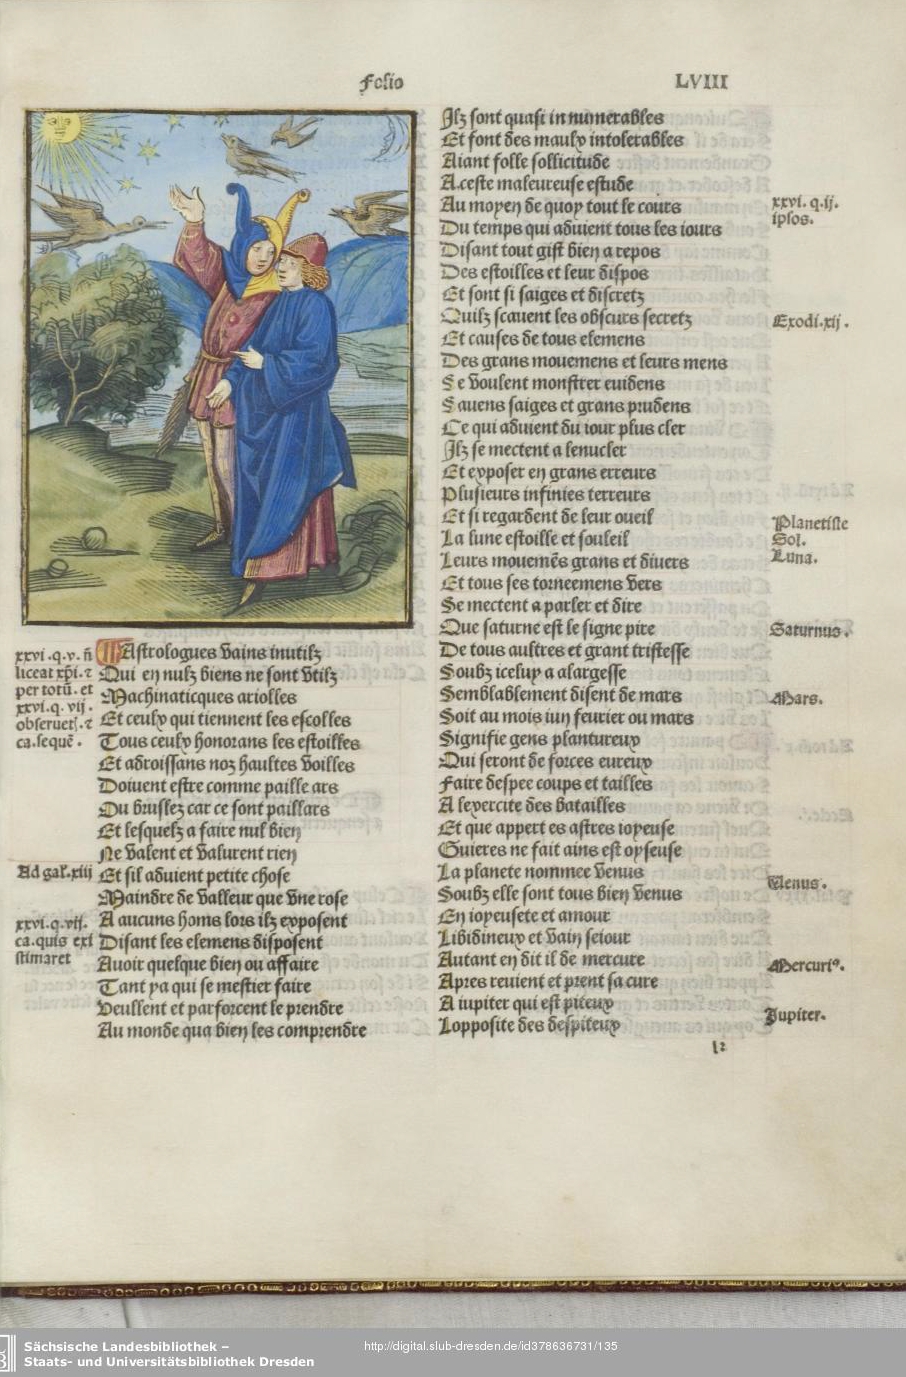 Folio LVIII
xxvi. q. v. n̄
liceat xp̄i. ⁊
per totū. et
xxvi. q. vij.
obseruet. ⁊
ca. sequē.
Astrologues vains inutilz
Qui en nulz biens ne sont vtilz
Machinaticques ariolles
Et ceulx qui tiennent les escolles
Tous ceulx honorans les estoilles
Et adroissans noz haultes voilles
Doiuent estre comme paille ars
Ou bruslez car ce sont paillars
Et lesquelz a faire nul bien
Ne valent et valurent rien
Ad gal. xiii
Et sil aduient petite chose
Maindre de valleur que vne rose
xxvi. q. vij.
ca. quis exi
stimaret
A aucuns homs lors ilz exposent
Disant les elemens disposent
Auoir quelque bien ou affaire
Tant ya qui se mestier faire
Veullent et parforcent le prendre
Au monde qua bien les comprendre
Ilz sont quasi innumerables
Et font des maulx intolerables
Aiant folle sollicitude
A ceste maleureuse estude
Au moyen de quoy tout le cours
xxvi. q. ij.
ipsos.
Du temps qui aduient tous les iours
Disant tout gist bien a repos
Des estoilles et leur dispos
Et sont si saiges et discretz
Quilz scauent les obscurs secretz
Exodi. xij.
Et causes de tous elemens
Des grans mouemens et leurs mens
Se voulent monstrer euidens
Sauens saiges et grans prudens
Ce qui aduient du iour plus cler
Ilz se mectent a lenucler
Et exposer en grans erreurs
Plusieurs infinies terreurs
Et si regardent de leur oueil
La lune estoille et souleil
Planetiste
Sol.
Luna.
Leurs mouemēs grans et diuers
Et tous ses torneemens vers
Se mectent a parler et dire
Que saturne est le signe pire
Saturnus.
De tous aultres et grant tristesse
Soubz iceluy a alargesse
Semblablement disent de mars
Mars.
Soit au mois iun feurier ou mars
Signifie gens plantureux
Qui seront de forces eureux
Faire despee coups et tailles
A lexercite des batailles
Et que appert es astres ioyeuse
Guieres ne fait ains est oyseuse
La planete nommee venus
Venus.
Soubz elle sont tous bien venus
En ioyeusete et amour
Libidineux et vain seiour
Autant en dit il de mercure
Mercuriꝰ.
Apres reuient et prent sa cure
A iupiter qui est piteux
Iupiter.
Lopposite des despiteux
Sächsische Landesbibliothek –
Staats- und Universitätsbibliothek Dresden
http://digital.slub-dresden.de/id378636731/135